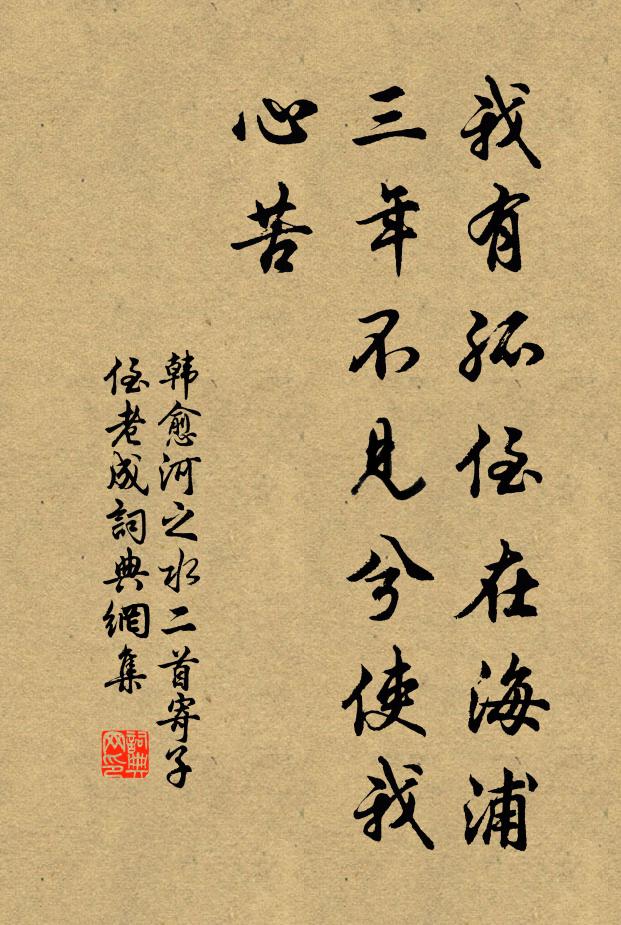 我有孤侄在海浦
三年不見兮使我
心苦
韓愈河之水二首寄子
侄老成詞典網集
詞典網印